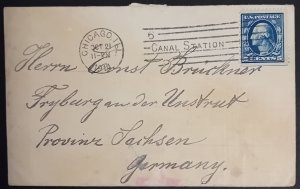 CHICAGO, ILL.
OCT 21
11-PM
5
CANAL STATION
U.S. POSTAGE
5 CENTS 5
Herrn Ernst Brückner
Fryburg an der Unstrut
Provinz Sachsen
Germany.